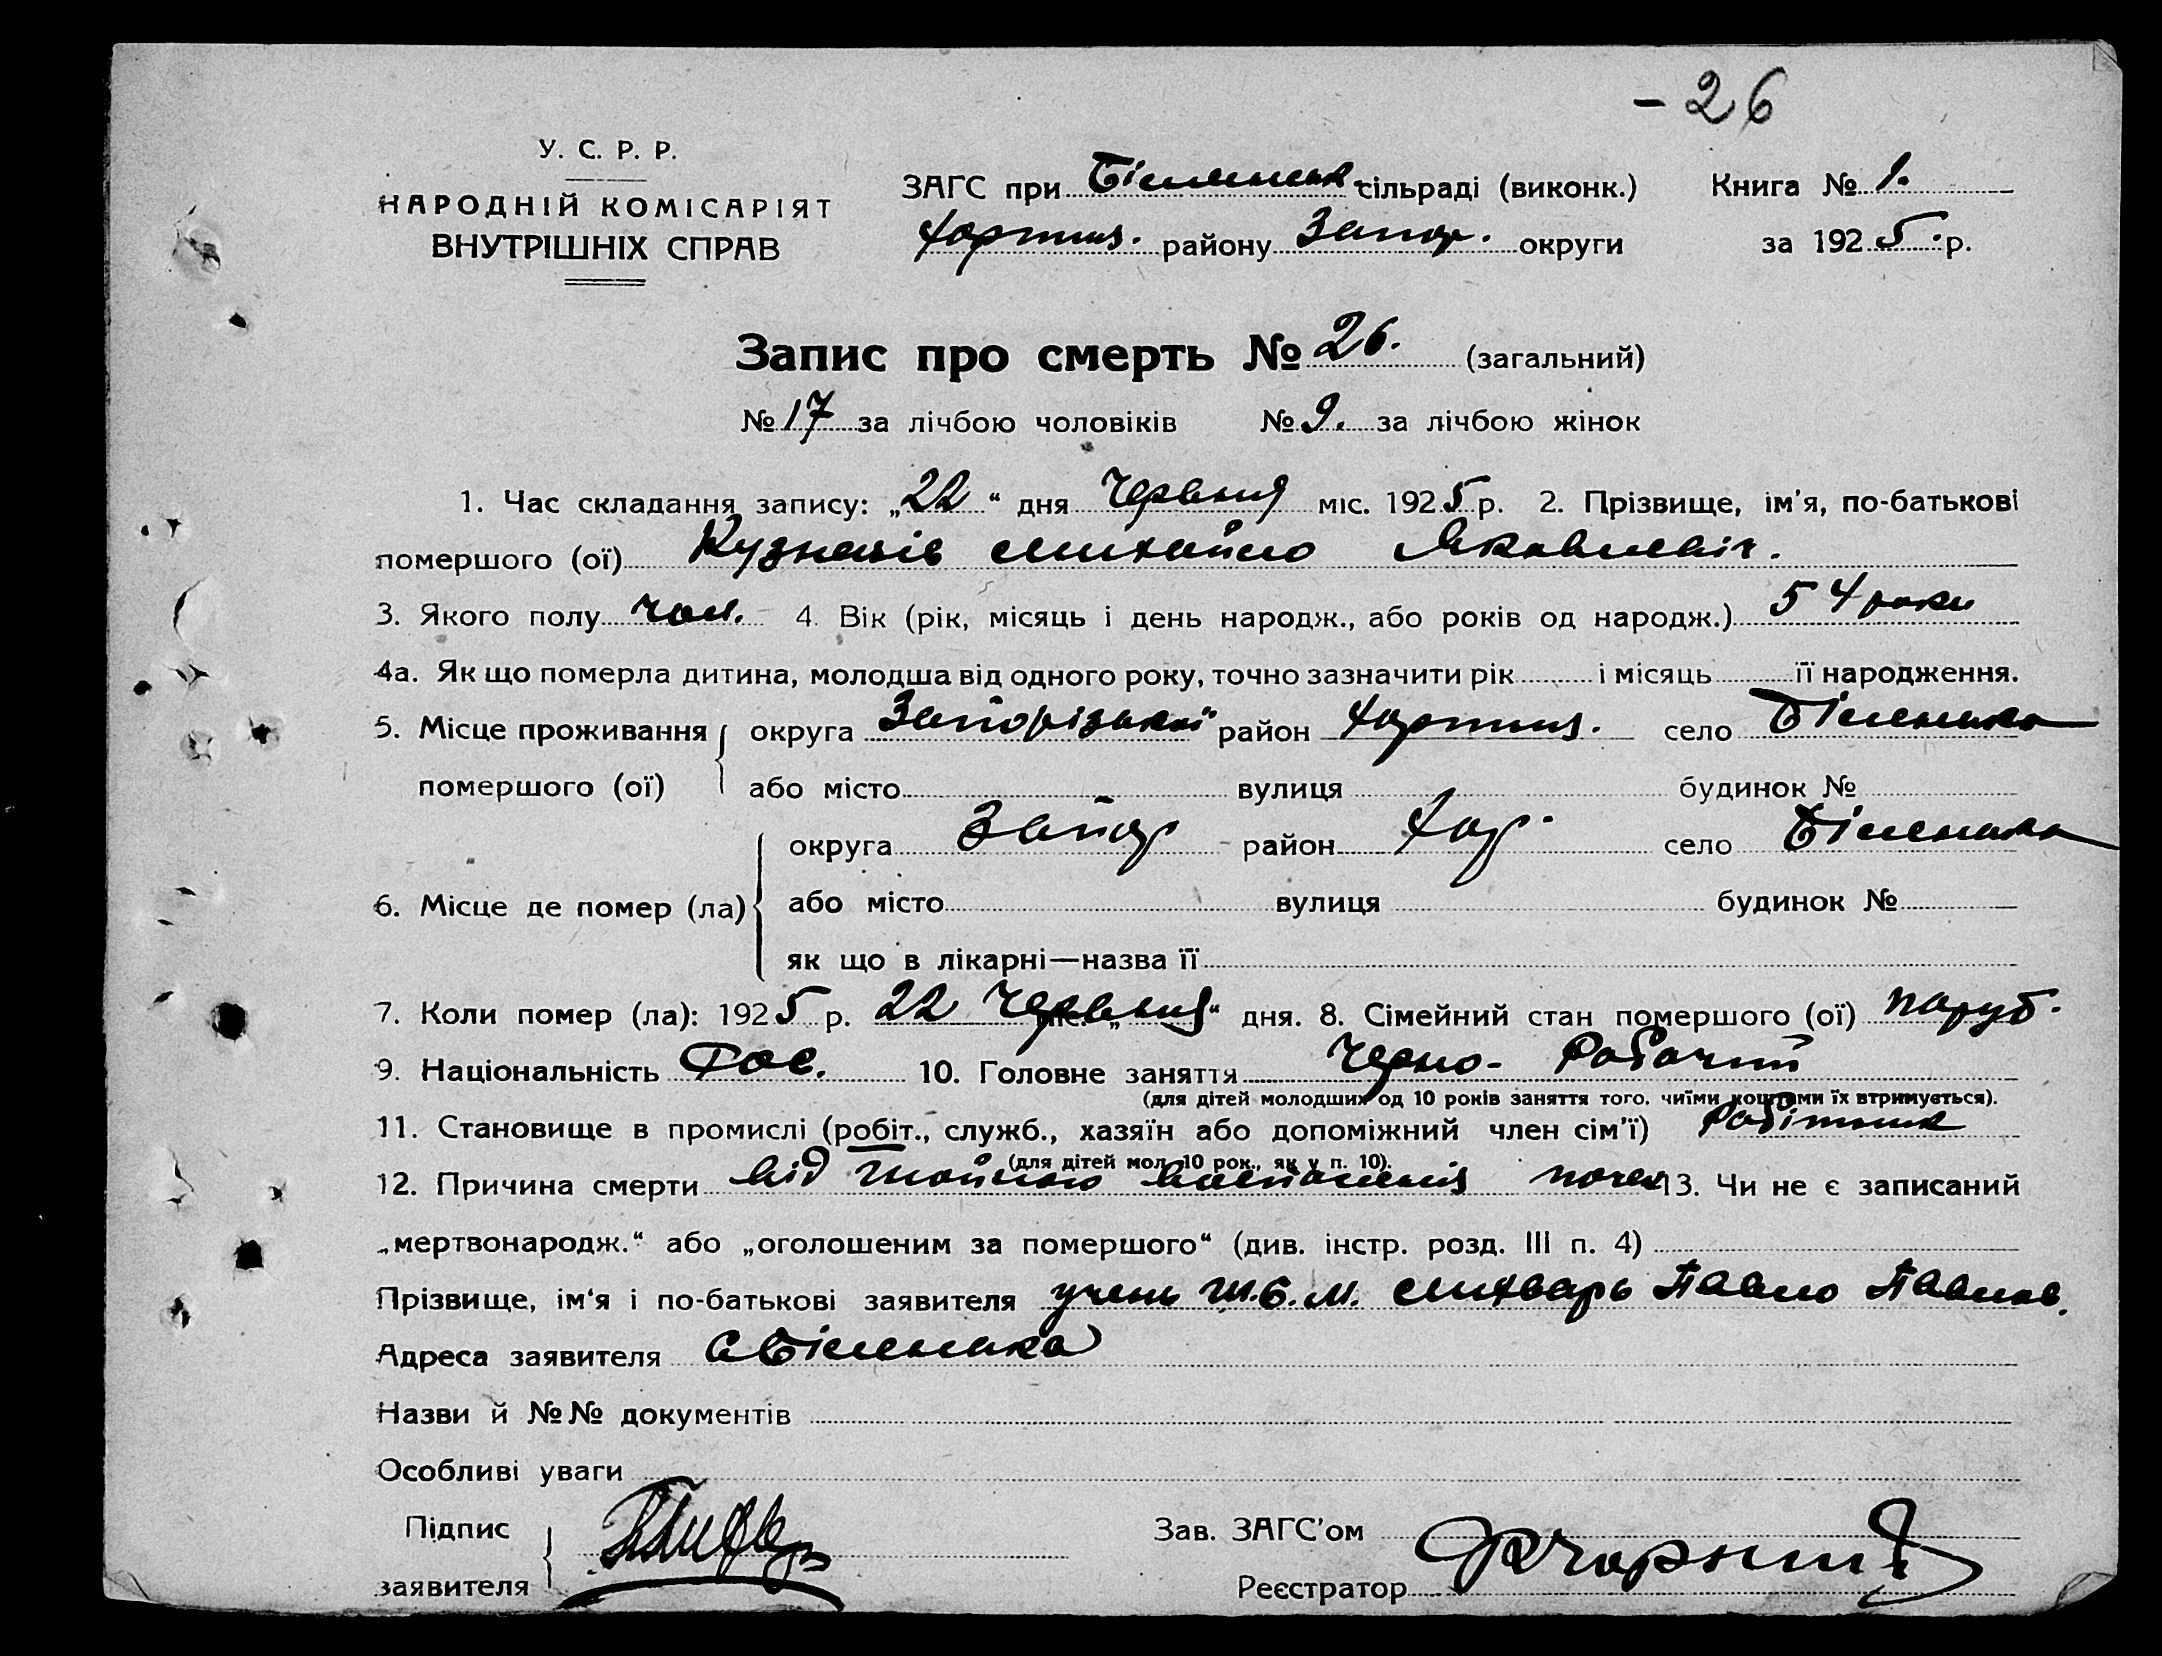 - 26
У. С. Р. Р.
НАРОДНІЙ КОМІСАРІЯТ
ВНУТРІШНІХ СПРАВ
ЗАГС при Біленськ сільраді (виконк.) Книга № 1.
Хортиц. району Запор. округи за 1925 р.
Запис про смерть № 26. (загальний)
№ 17 за лічбою чоловіків № 9. за лічбою жінок
1. Час складання запису: „22“ дня Червня міс. 1925 р. 2. Прізвище, ім'я, по-батькові
помершого (ої) Кузнеців Михайло Яковлевіч.
3. Якого полу чол. 4. Вік (рік, місяць і день народж., або років од народж.) 54 роки
4а. Як що померла дитина, молодша від одного року, точно зазначити рік і місяць її народження.
5. Місце проживання округа Запорізькій район Хортиц. село Біленька
помершого (ої) або місто вулиця будинок №
округа Запор район Хор. село Біленька
6. Місце де помер (ла) або місто вулиця будинок №
як що в лікарні—назва її
7. Коли помер (ла): 1925 р. 22 Червня міс. „ “ дня. 8. Сімейний стан помершого (ої) паруб.
9. Національність Рос. 10. Головне заняття Черно-Рабочий
(для дітей молодших од 10 років заняття того, чиїми коштами їх втримується).
11. Становище в промислі (робіт., служб., хазяїн або допоміжний член сім'ї) Робітник
(для дітей мол. 10 рок., як у п. 10).
12. Причина смерти від воспаленія почек 13. Чи не є записаний
„мертвонародж.“ або „оголошеним за помершого“ (див. інстр. розд. III п. 4)
Прізвище, ім'я і по-батькові заявителя Павло Павлов.
Адреса заявителя с Біленька
Назви й №№ документів
Особливі уваги
Підпис Зав. ЗАГС'ом
заявителя Реєстратор Чорний